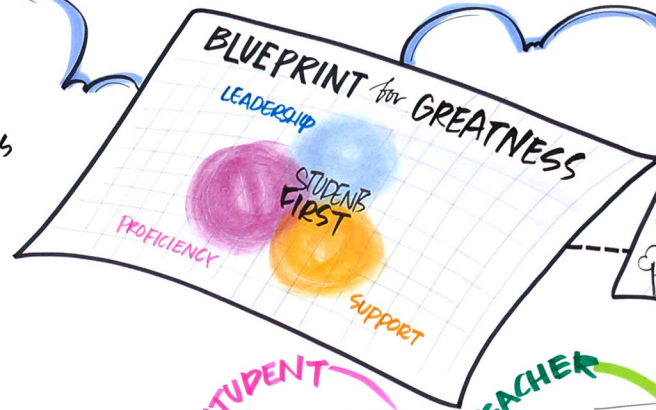 BLUEPRINT for GREATNESS
LEADERSHIP
STUDENTS
FIRST
PROFICIENCY
SUPPORT